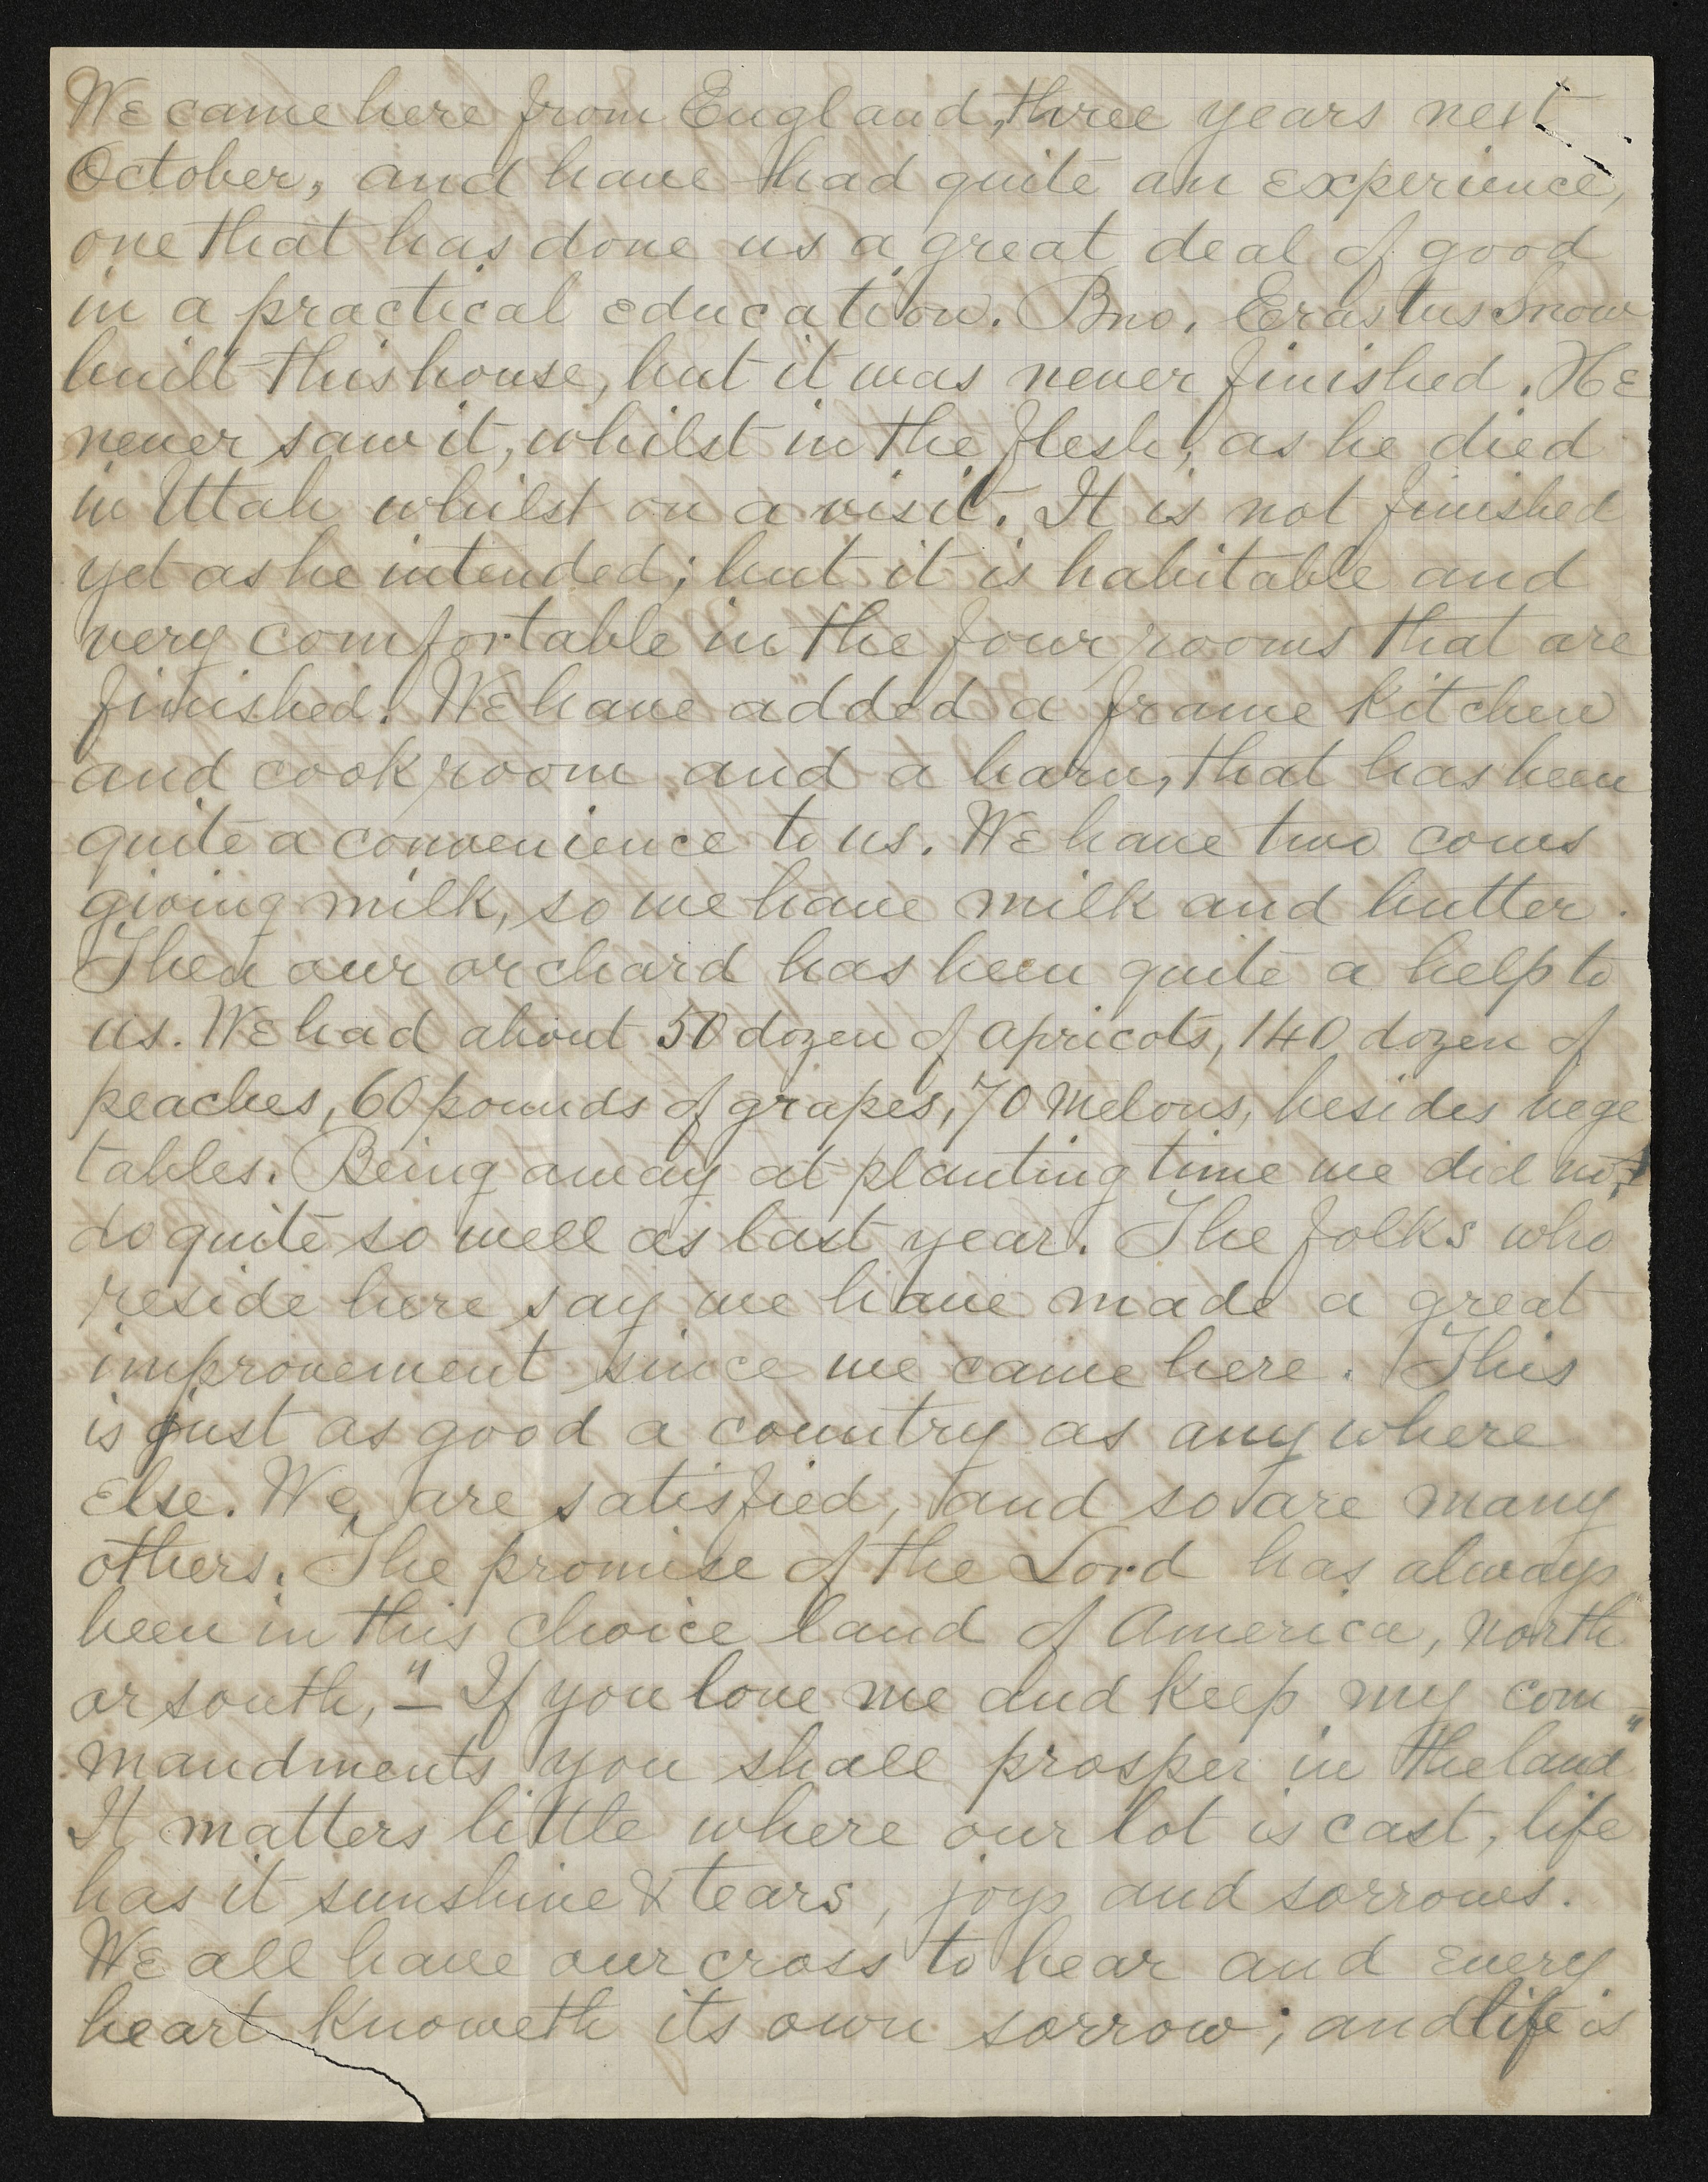 We came here from England, three years next
October, and have had quite an experience,
one that has done us a great deal of good
in a practical education. Bro. Erastus Snow
built this house, but it was never finished. He
never saw it, whilst in the flesh, as he died
in Utah whilst on a visit. It is not finished
yet as he intended; but it is habitable and
very comfortable in the four rooms that are
finished. We have added a frame kitchen
and cook room and a barn, that has been
quite a convenience to us. We have two cows
giving milk, so we have milk and butter.
Then our orchard has been quite a help to
us. We had about 50 dozen of apricots, 140 dozen of
peaches, 60 pounds of grapes, 70 Melons, besides vege
tables. Being away at planting time we did not
do quite so well as last year. The folks who
reside here say we have made a great
improvement since we came here. This
is just as good a country as any where
else. We are satisfied, and so are many
others. The promise of the Lord has always
been in this choice land of America, north
or south, "— If you love me and keep my com-
mandments you shall prosper in the land"
It matters little where our lot is cast, life
has it sunshine & tears, joys and sorrows.
We all have our cross to bear and every
heart knoweth its own sorrow; and life is